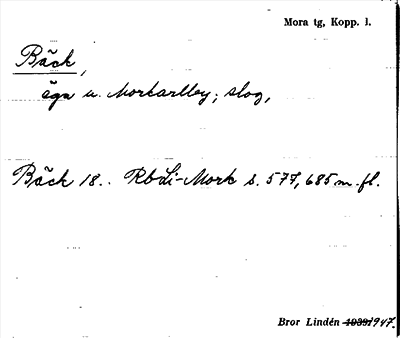 Mora tg, Kopp. l.
Bäck,
äga u. Morkarlby; skog,
Bäck 18.. RbLi-Mork s. 577, 685 m. fl.
Bror Lindén 1939 1947.